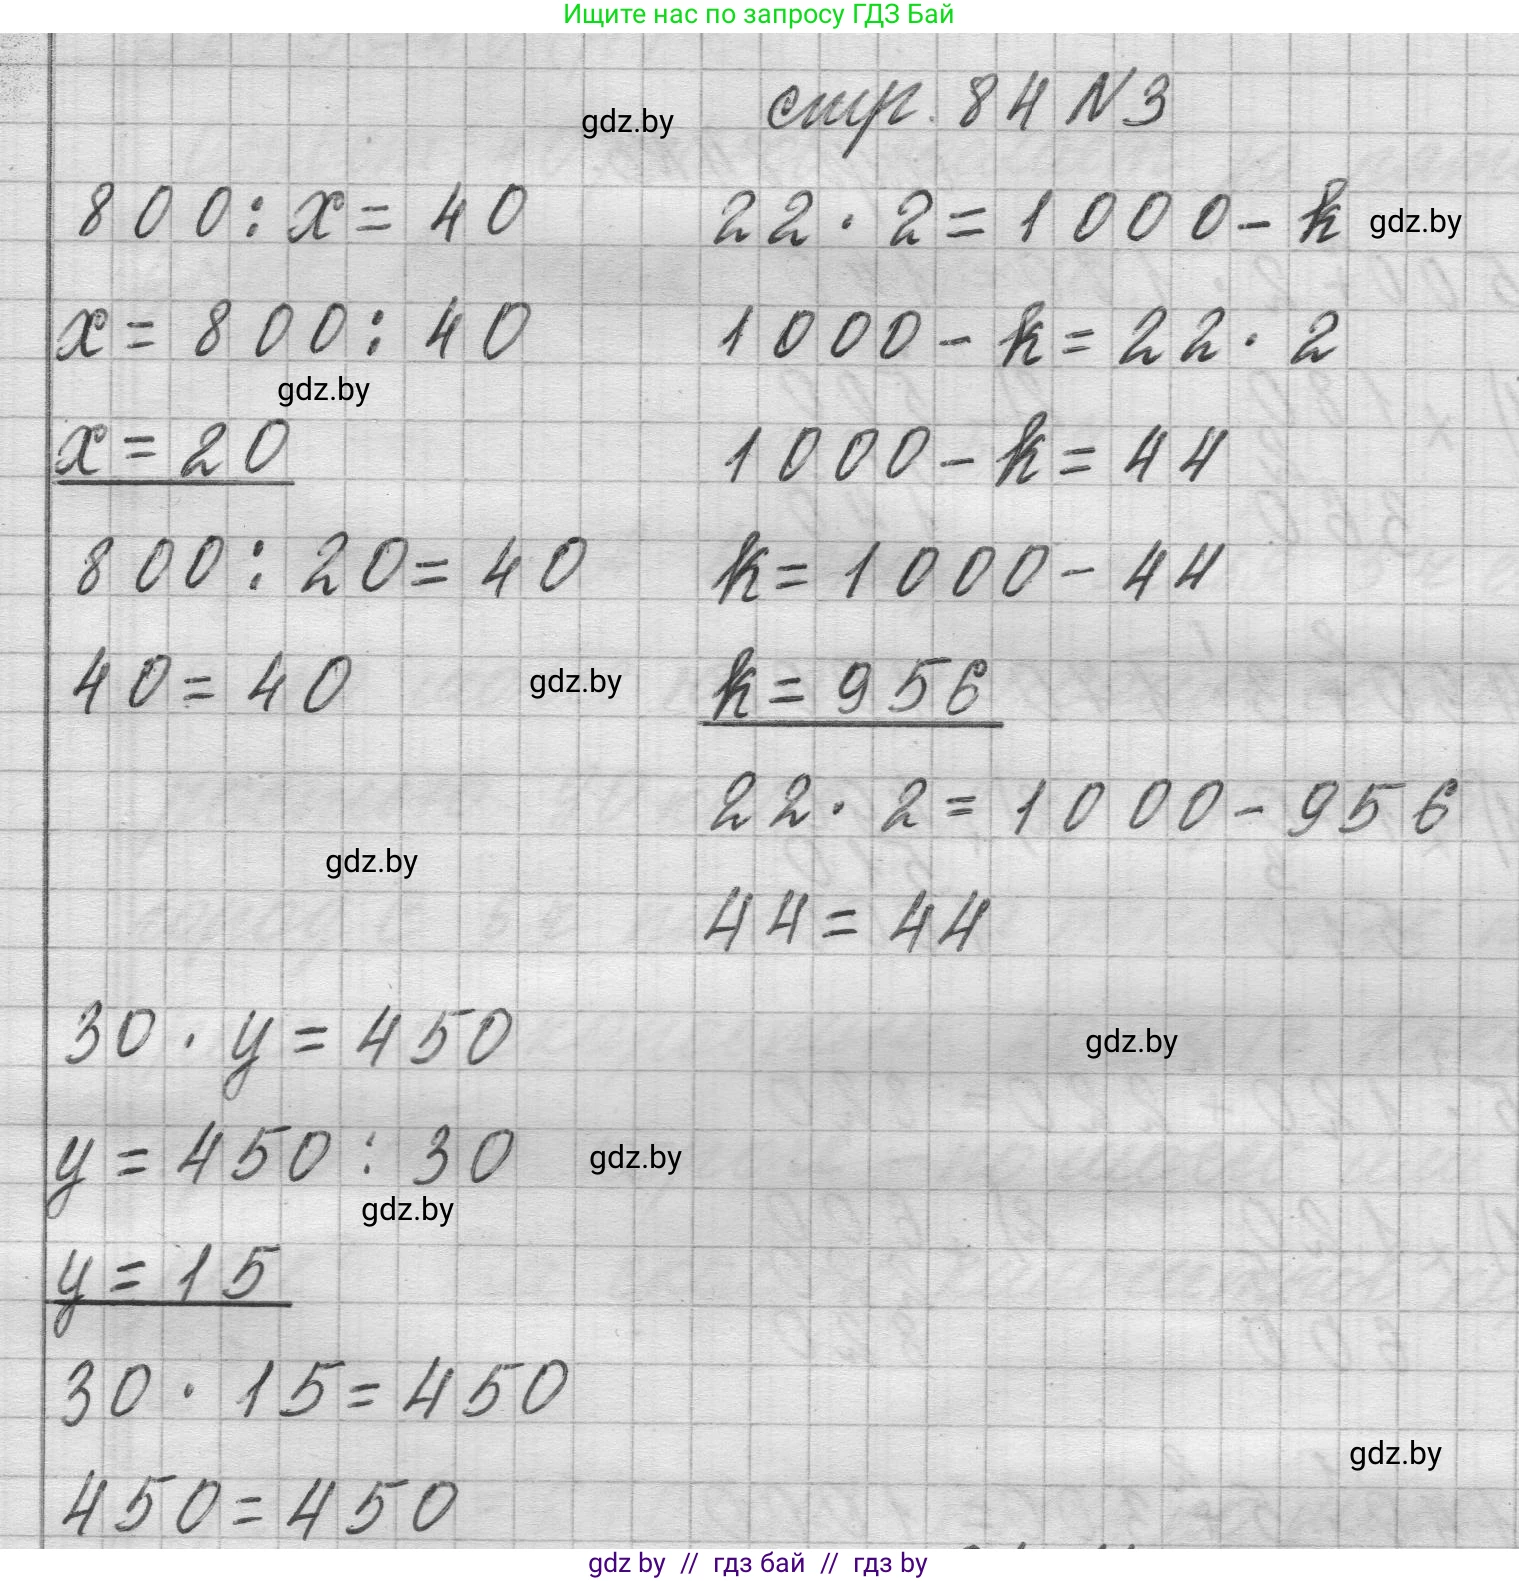 Ищите нас по запросу ГДЗ Бай
стр. 84 N 3
gdz.by
800 : x = 40
x = 800 : 40
gdz.by
x = 20
800 : 20 = 40
40 = 40
gdz.by
22 · 2 = 1000 - k
gdz.by
1000 - k = 22 · 2
1000 - k = 44
k = 1000 - 44
k = 956
22 · 2 = 1000 - 956
44 = 44
gdz.by
30 · y = 450
gdz.by
y = 450 : 30
gdz.by
gdz.by
y = 15
30 · 15 = 450
gdz.by
450 = 450
gdz by // гдз бай // гдз by